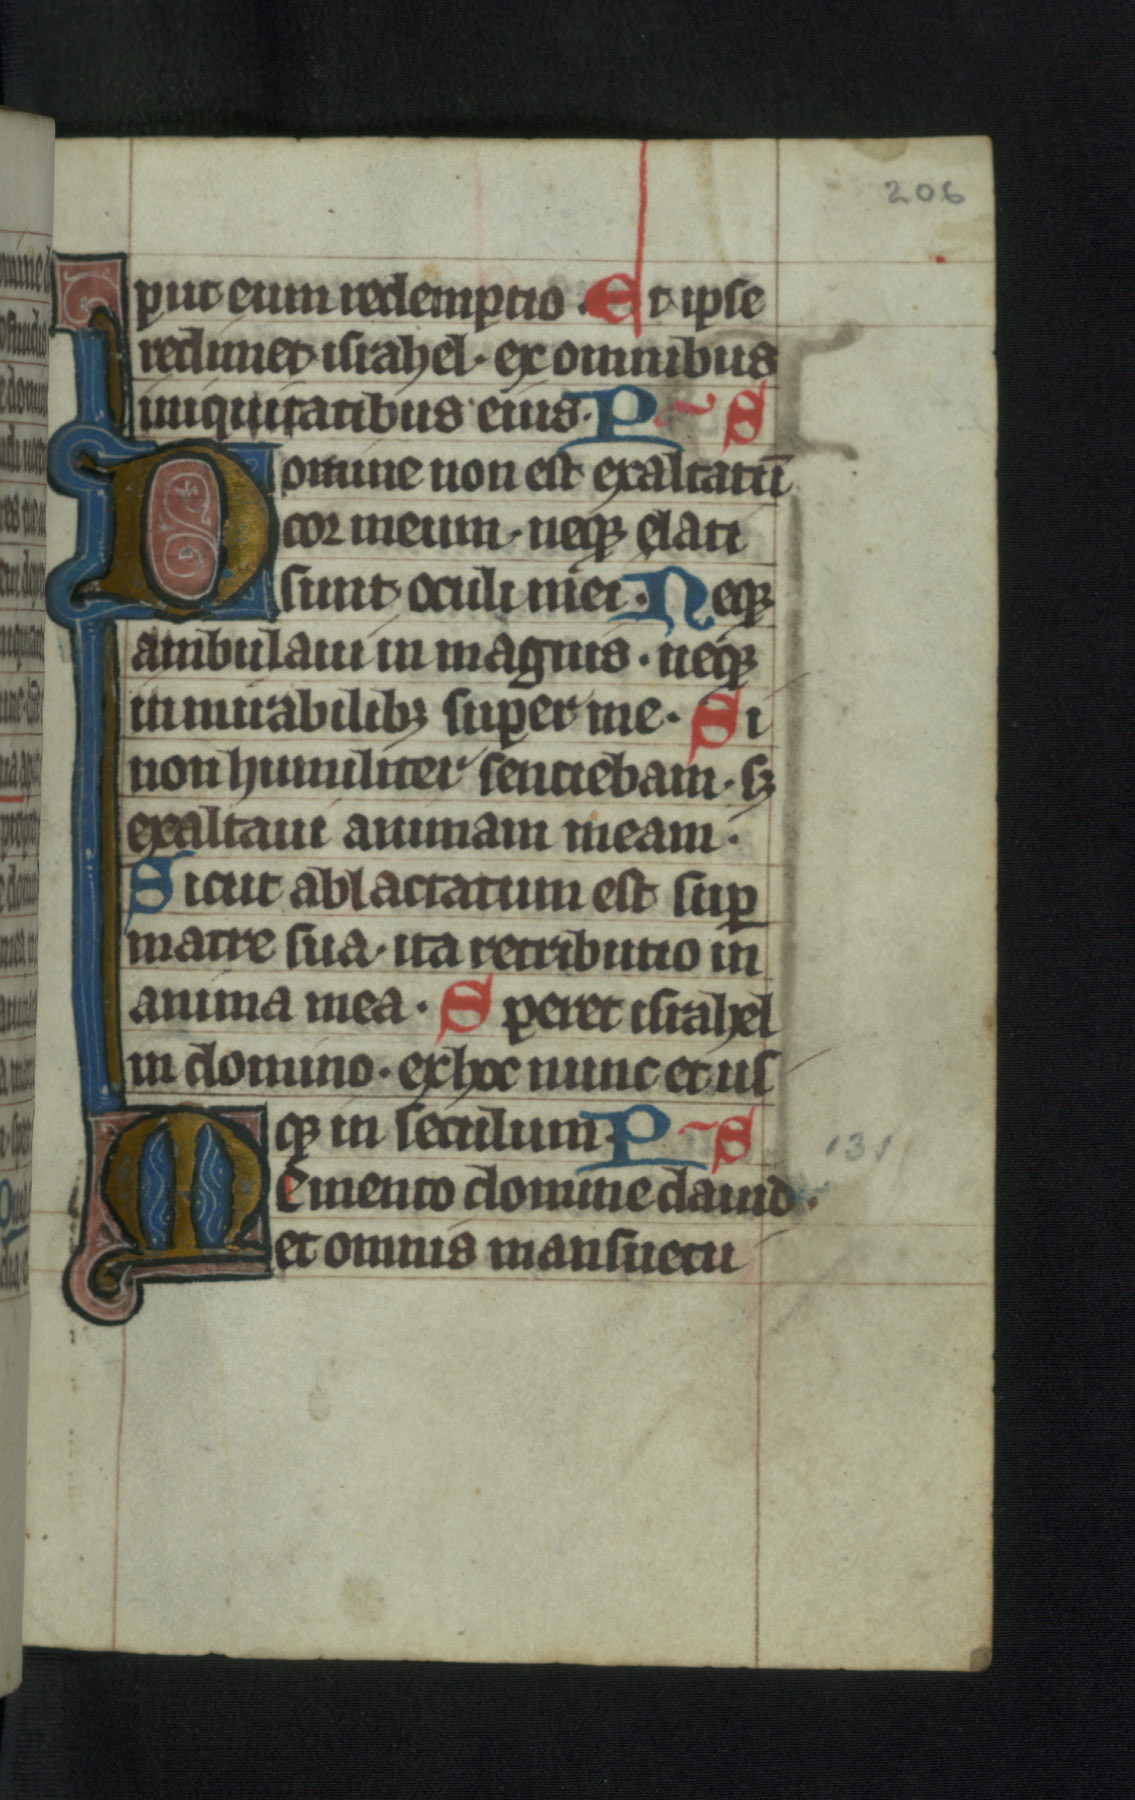 206
put eum redemptio . Et ipse
redimet israhel . ex omnibus
iniquitatibus eius . P S
Domine non est exaltatū
cor meum . neqꝫ elati
sunt oculi mei . Neqꝫ
ambulaui in magnis . neqꝫ
in mirabilibꝫ super me . Si
non humiliter sentiebam . sꝫ
exaltaui animam meam .
Sicut ablactatum est suꝑ
matre sua . ita retributio in
anima mea . Speret israhel
in domino . ex hoc nunc et us
qꝫ in seculum . P S
131
Memento domine dauid .
et omnis mansuetu